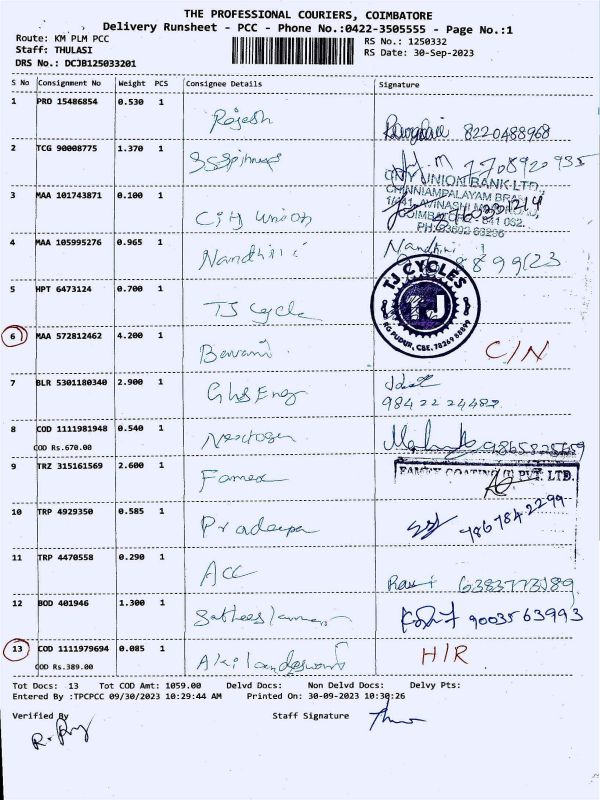 THE PROFESSIONAL COURIERS, COIMBATORE
Delivery Runsheet - PCC - Phone No.:0422-3505555 - Page No.:1
Route: KM PLM PCC RS No.: 1250332
Staff: THULASI RS Date: 30-Sep-2023
DRS No.: DCJB125033201
S No Consignment No Weight PCS Consignee Details Signature
1 PRO 15486854 0.530 1 Rajesh 8220488968
2 TCG 90008775 1.370 1 7708920935
CITY UNION BANK LTD.,
CHINNIAMPALAYAM
3 MAA 101743871 0.100 1 City Union
4 MAA 105995276 0.965 1 Nandhini Nandhini
5 HPT 6473124 0.700 1 TJ Cycle
TJ CYCLES
TJ
RG PUDUR, CBE. 78269 88899
6 MAA 572812462 4.200 1 Bavani C/N
7 BLR 5301180340 2.900 1 Ghs Eng
8 COD 1111981948 0.540 1
COD Rs.670.00
9 TRZ 315161569 2.600 1 Famex PVT. LTD.
10 TRP 4929350 0.585 1 Pradeepa 9867842299
11 TRP 4470558 0.290 1 ACC Ravi
12 BOD 401946 1.300 1 9003563993
13 COD 1111979694 0.085 1 Akilandeswari H/R
COD Rs.389.00
Tot Docs: 13 Tot COD Amt: 1059.00 Delvd Docs: Non Delvd Docs: Delvy Pts:
Entered By :TPCPCC 09/30/2023 10:29:44 AM Printed On: 30-09-2023 10:30:26
Verified By Staff Signature